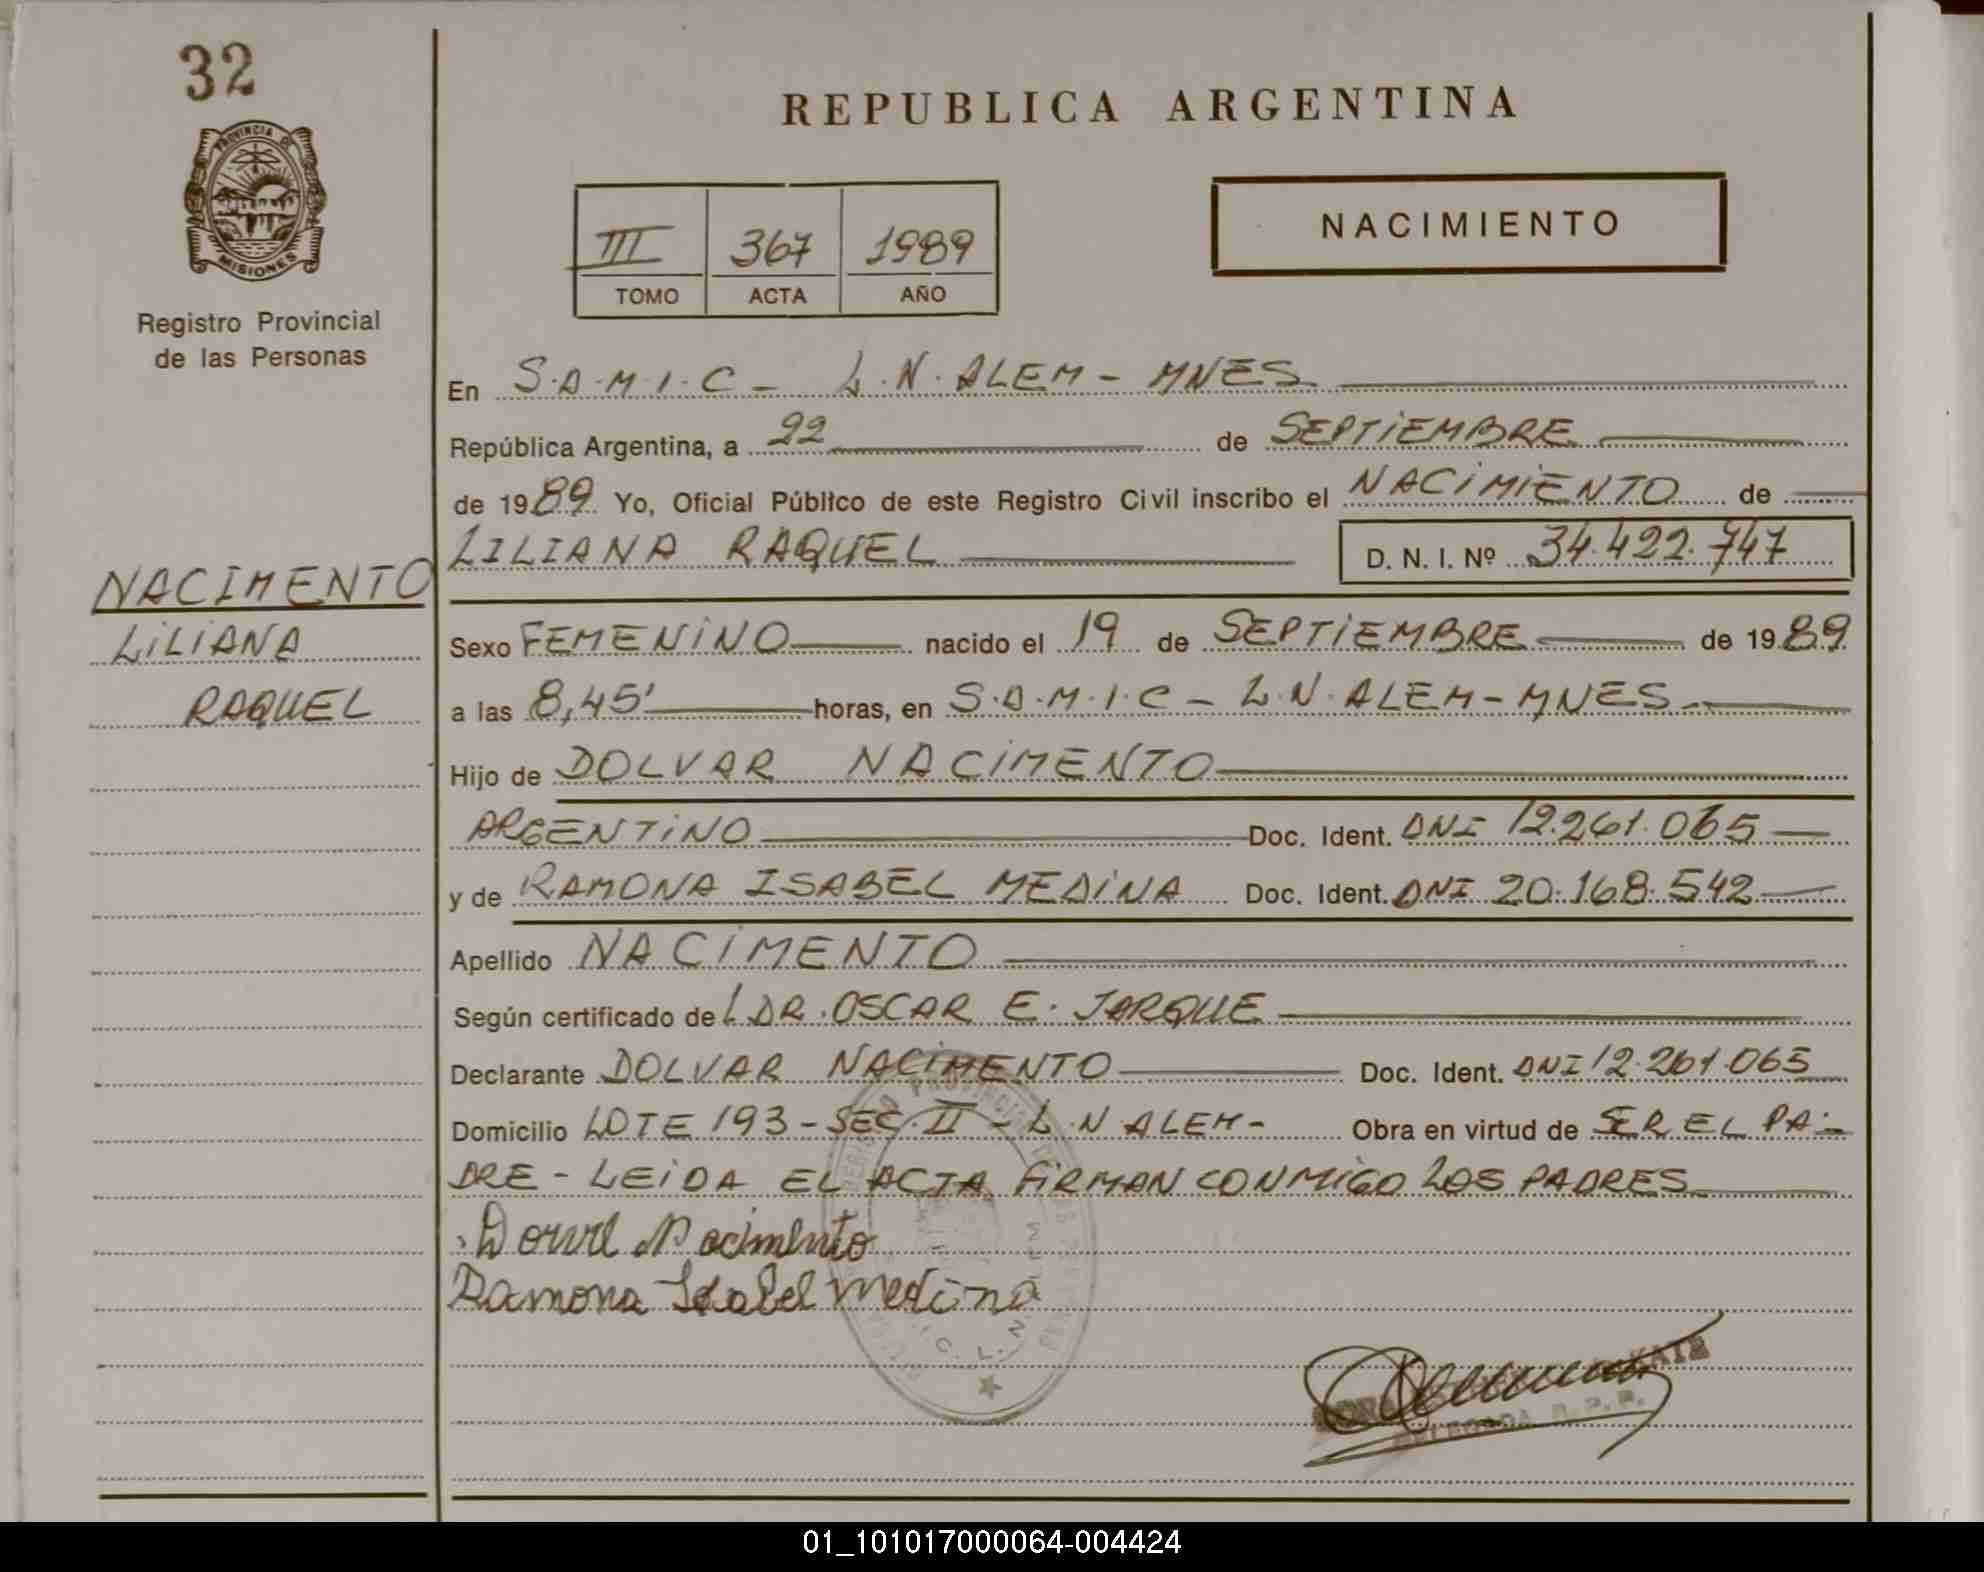 32
PROVINCIA DE
MISIONES
Registro Provincial
de las Personas
NACIMENTO
LILIANA
RAQUEL
REPUBLICA ARGENTINA
III 367 1989
TOMO ACTA AÑO
NACIMIENTO
En S.A.M.I.C - L.N. ALEM - MNES
República Argentina, a 22 de SEPTIEMBRE
de 1989 Yo, Oficial Público de este Registro Civil inscribo el NACIMIENTO de
LILIANA RAQUEL D. N. I. Nº 34.422.747
Sexo FEMENINO nacido el 19 de SEPTIEMBRE de 1989
a las 8,45' horas, en S.A.M.I.C - L.N. ALEM - MNES
Hijo de DOLVAR NACIMENTO
ARGENTINO Doc. Ident. DNI 12.261.065
y de RAMONA ISABEL MEDINA Doc. Ident. DNI 20.168.542
Apellido NACIMENTO
Según certificado de DR. OSCAR E. JARQUE
Declarante DOLVAR NACIMENTO Doc. Ident. DNI 12.261.065
Domicilio LOTE 193 - SEC. II - L.N ALEM - Obra en virtud de SER EL PA-
DRE - LEIDA EL ACTA FIRMAN CONMIGO LOS PADRES
Nacimento
Ramona Isabel Medina
DELEGADA R. P. P.
01_101017000064-004424